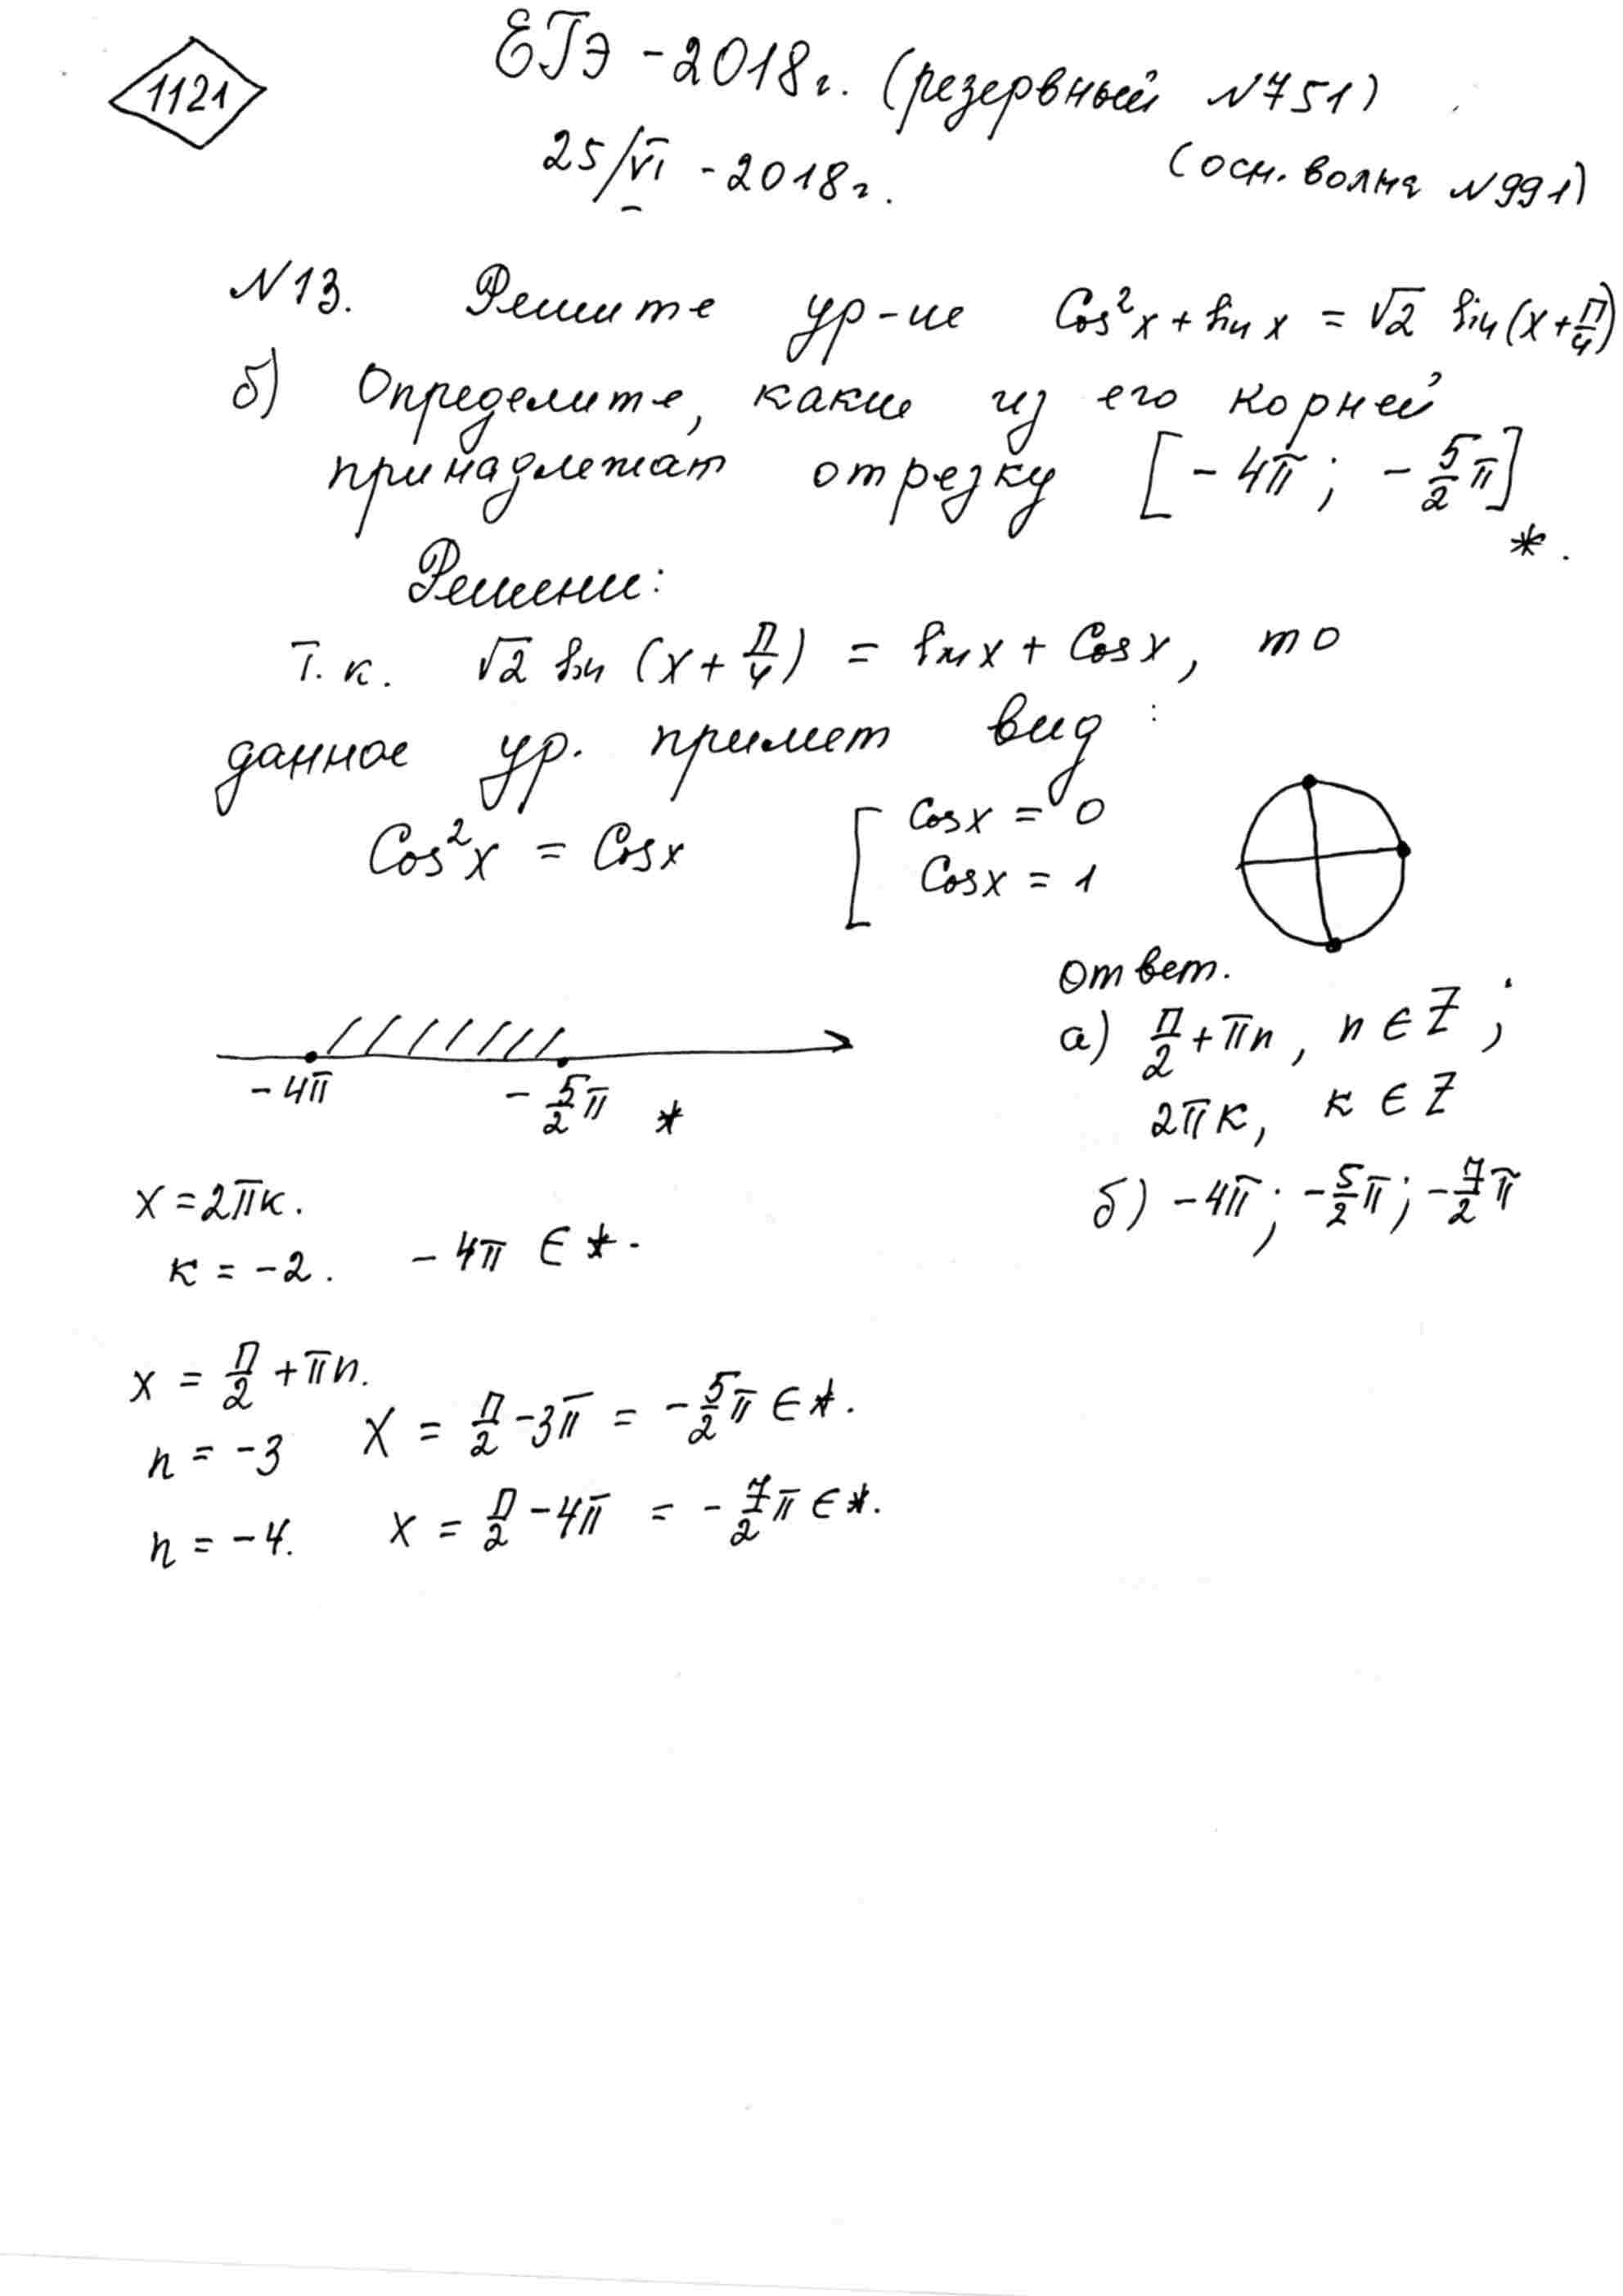 1121
ЕГЭ - 2018г. (резервный №751)
25/VI - 2018г. (осн. волна №991)
№13. Решите ур-ие Cos²x + sin x = √2 sin(x + π/4)
б) Определите, какие из его корней
принадлежат отрезку [-4π; -5/2 π] *.
Решение:
Т.к. √2 sin (x + π/4) = sin x + Cos x, то
данное ур. примет вид:
Cos²x = Cos x [ Cos x = 0
Cos x = 1
ответ.
а) π/2 + πn, n ∈ Z;
2πк, к ∈ Z
б) -4π; -5/2 π; -7/2 π
-4π -5/2 π *
x = 2πк.
к = -2. -4π ∈ *.
x = π/2 + πn.
n = -3 x = π/2 - 3π = -5/2 π ∈ *.
n = -4. x = π/2 - 4π = -7/2 π ∈ *.